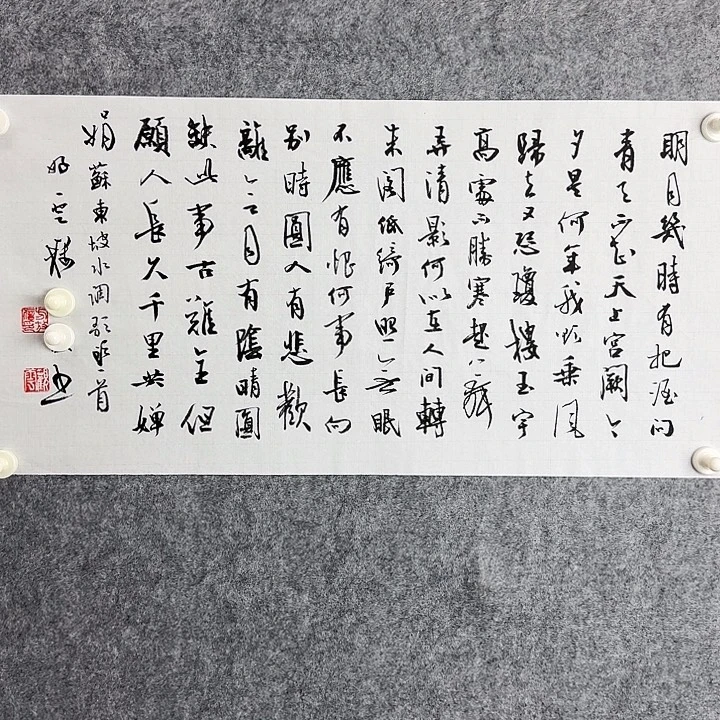 明月幾時有把酒问
青天不知天上宫阙今
夕是何年我欲乘风
歸去又恐瓊樓玉宇
高處不勝寒起舞
弄清影何似在人间轉
朱阁低绮户照无眠
不應有恨何事長向
别時圓人有悲歡
離合月有陰晴圓
缺此事古難全但
願人長久千里共嬋
娟
蘇東坡水调歌頭一首